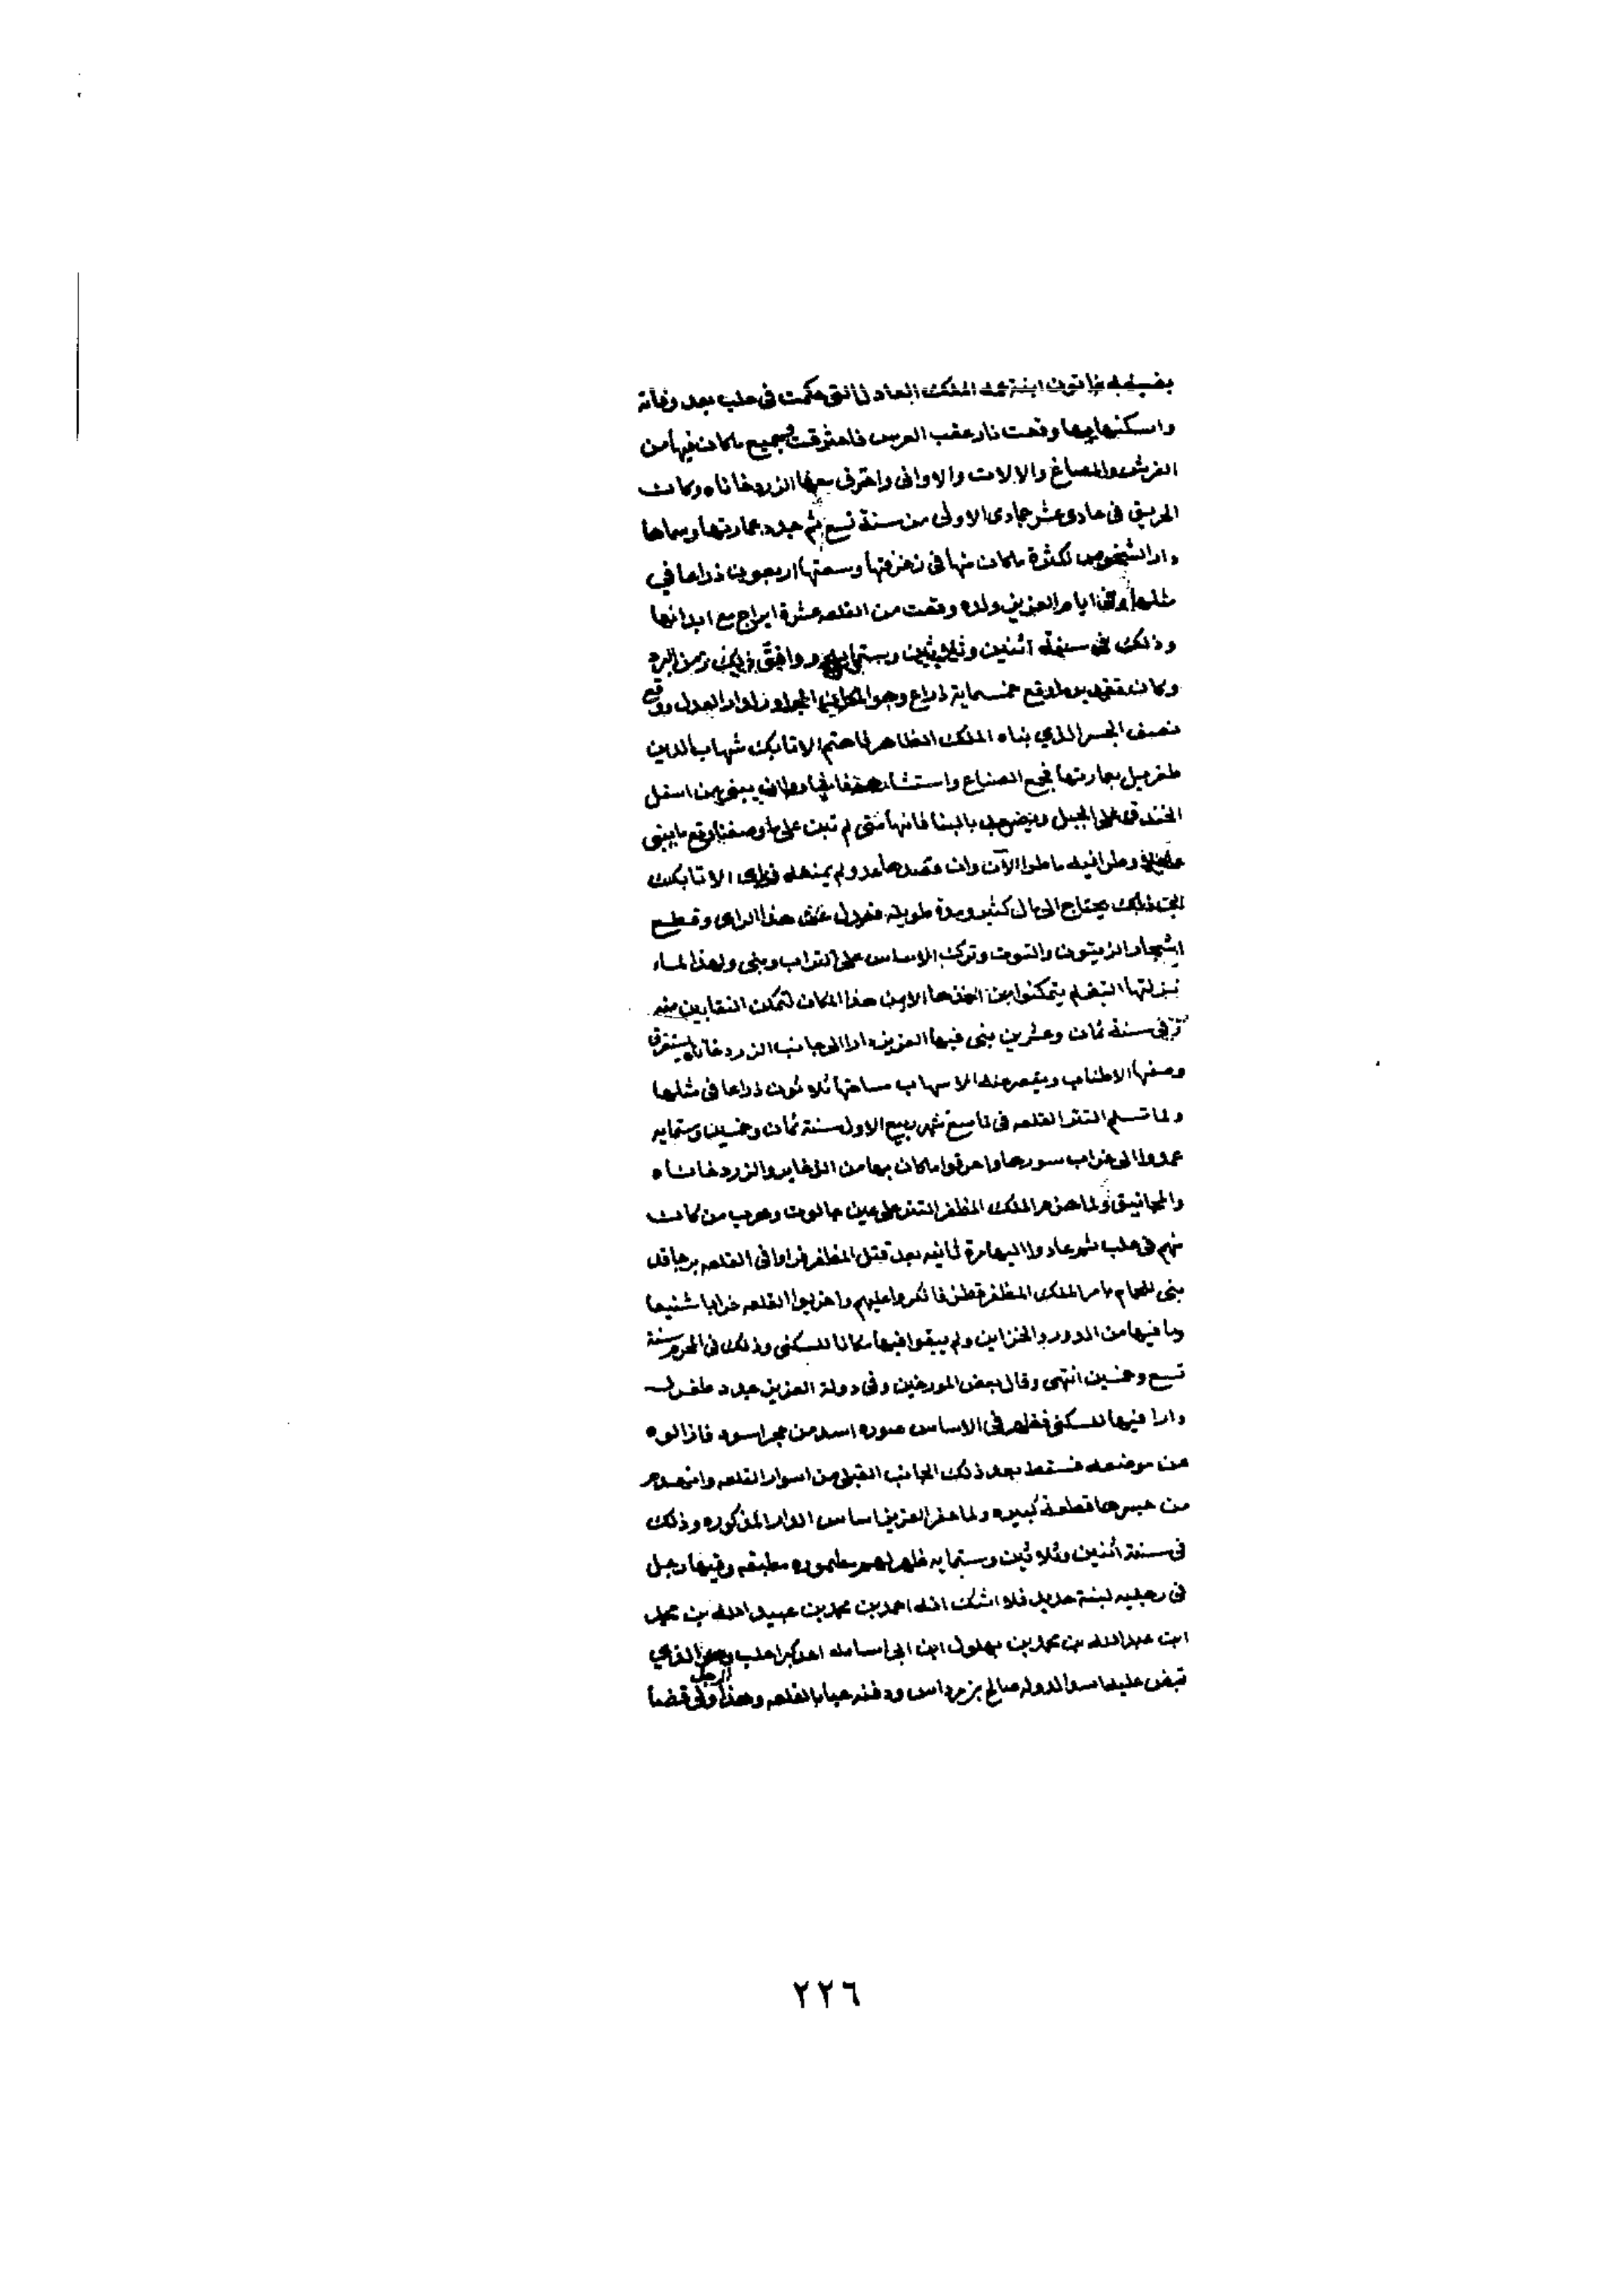 بضيفه خاتون ابنة عمه الملك العادل التي حكمت في حلب بعد وفاته
واسكنها بها وقعت نار عقب العرس فاحترقت جميع ما كان فيها من
الفرش والمصاغ والالات والاواني واحترق معها الزردخاناه وكانت
الحريق في حادى عشر جمادى الاولى من سنة تسع ثم جدد عمارتها وسماها
دار الشخوص لكثرة ما كان منها في زخرفتها وسعتها اربعون ذراعا في
مثلها وفي ايام العزيز ولده وقعت من القلعه عشرة ابراج مع ابدانها
وذلك في سنة اثنين وثلاثين وستمايه ووافق ذلك زمن البرد
وكان تقدير ما وقع خمسماية ذراع وهو المكان المجاور لدار العدل ووقع
نصف الجسر الذي بناه الملك الظاهر فاهتم الاتابك شهاب الدين
طغريل بعمارتها فجمع الصناع واستشارهم فاشاروا ان يبنى من اسفل
الخندق على الجبل ويصعد بالبنا فانها متى لم تبن على ما وصفنا وقع ما يبنى
عاجلا وطرا فيه ما طرا الآن وان قصدها عدو لم يمنعه فراى الاتابك
ان ذلك يحتاج الى مال كثير ومدة طويله فعدل عن هذا الراى وقطع
اشجار الزيتون والتوت وترك الاساس على التراب وبنى ولهذا لما
نزلتها التتر لم يتمكنوا من اخذها الا من هذا المكان لتمكن النقابين منه
وفي سنة ثمان وعشرين بنى فيها العزيز دارا الى جانب الزردخاناه يستغرق
وصفها الاطناب ويقصر عنه الاسهاب مساحتها ثلاثون ذراعا في مثلها
ولما تسلم التتر القلعه في تاسع شهر ربيع الاول سنة ثمان وخمسين وستمايه
عمدوا الى خراب سورها واحرقوا ما كان بها من الذخاير والزردخاناه
والمجانيق ولما هزم الملك المظفر التتر على عين جالوت وهرب من كان
منهم في حلب ثم عادوا اليها مرة ثانيه بعد قتل المظفر فراوا في القلعه برجا قد
بنى للحمام بامر الملك المظفر قطز فانكروا عليهم واخربوا القلعه خرابا شنيعا
وما فيها من الدور والخزاين ولم يبقوا فيها مكانا للسكنى وذلك في المحرم سنة
تسع وخمسين انتهى وقال بعض المورخين وفي دولة العزيز جدد طغرل
دارا فيها للسكنى فظهر في الاساس صوره اسد من حجر اسود فازالوه
من موضعه فسقط بعد ذلك الجانب القبلي من اسوار القلعه وانهدم
من جسرها قطعة كبيره ولما حفر العزيز اساس الدار المذكوره وذلك
في سنة اثنين وثلاثين وستمايه ظهر لهم مطموره مطبقه وفيها رجل
في رجليه لبنة حديد فلا اشك انه احمد بن محمد بن عبيد الله بن محمد
ابن عبد الله بن محمد بن بهلول ابن ابى اسامه احد كبرا حلب وهو الذي
قبض عليه اسد الدوله صالح بن مرداس ودفنه حيا بالقلعه وهذا الرجل ولى قضا
٢٢٦